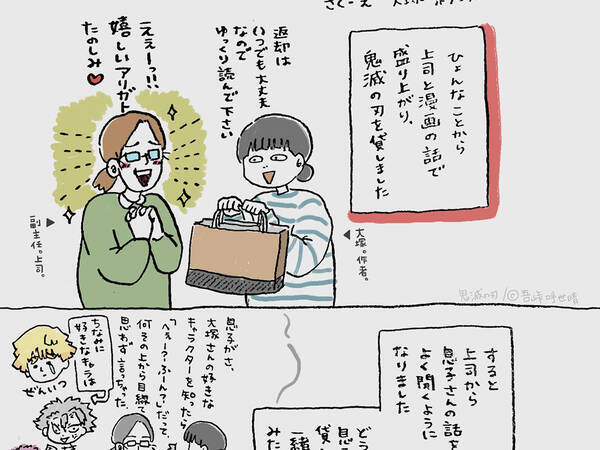 ひょんなことから
上司と漫画の話で
盛り上がり、
鬼滅の刃を貸しました
返却は
いつでも大丈夫
なので
ゆっくり読んで下さい
えぇーっ!!
嬉しいアリガト
たのしみ♥
大塚。作者。
副主任。上司。
鬼滅の刃/©吾峠呼世晴
すると
上司から
息子さんの話を
よく聞くように
なりました
どう
貸し
一緒
みた
息子がさ、
大塚さんの好きな
キャラクターを知ったら
「へぇー?ふーん?」だって。
何その上から目線て
思わず言っちゃった
ちなみに
好きなキャラは
ぜんいつ